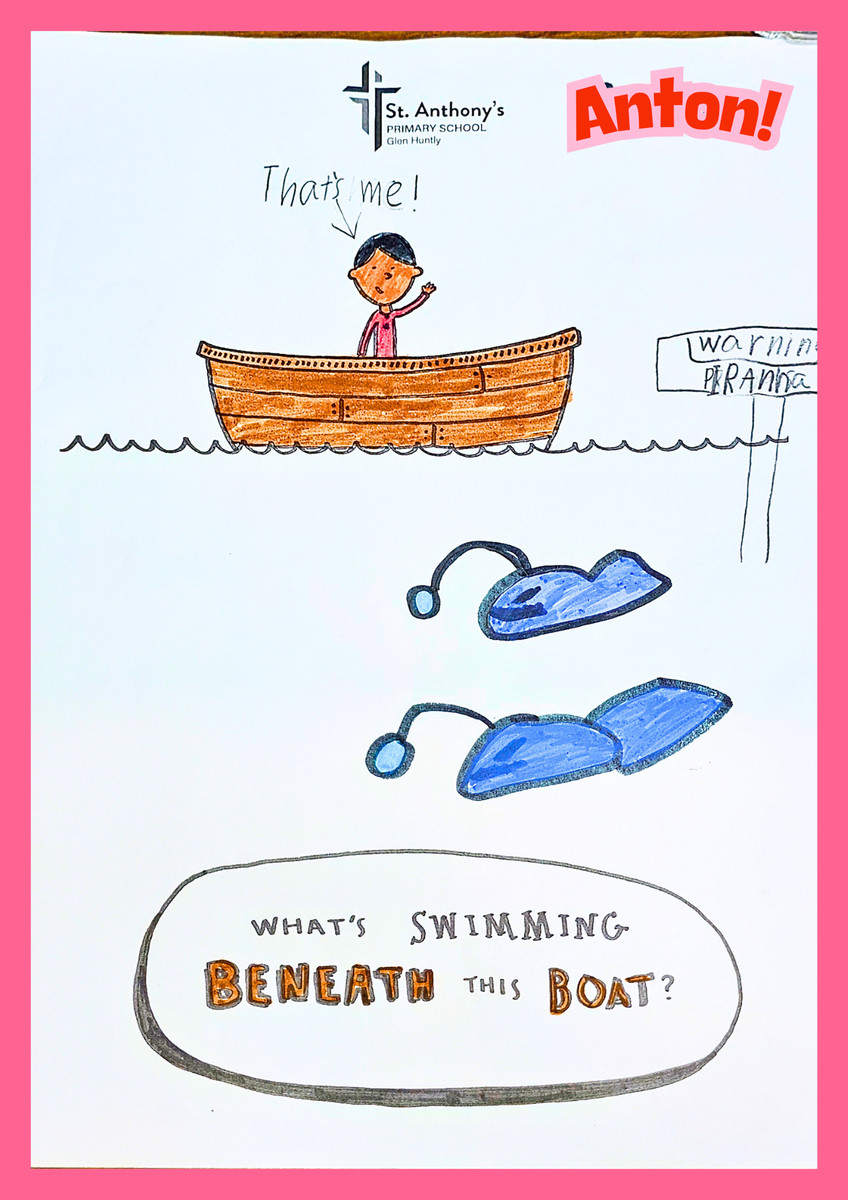 St. Anthony's
PRIMARY SCHOOL
Glen Huntly
Anton!
That's me!
warnin
PIRAnna
WHAT'S SWIMMING
BENEATH THIS BOAT?